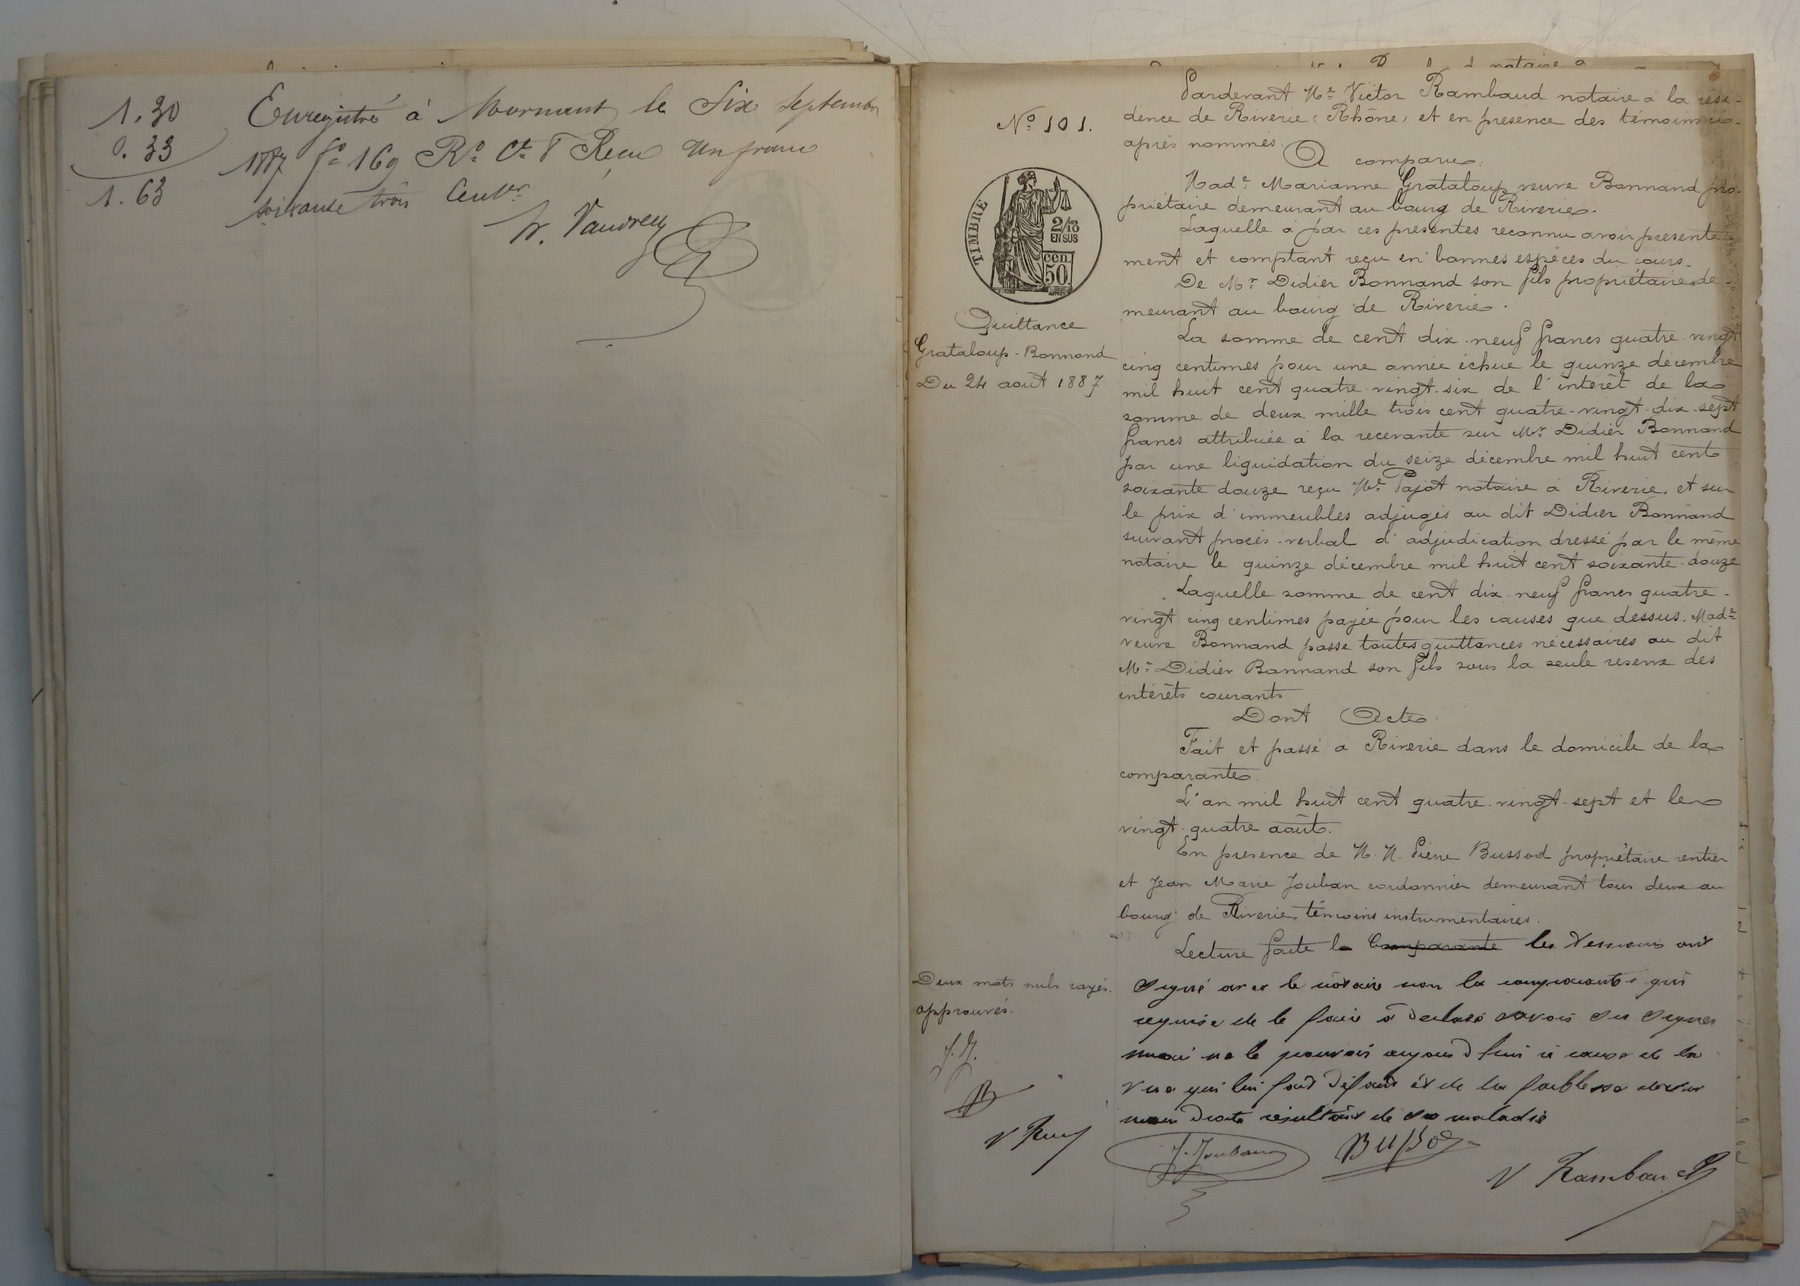 1.30
0.33
1.63
Enregistré à Mornant le Six Septembre
1887 f° 169 R° C. 8 Reçu Un franc
soixante trois Cent.
N° 101.
TIMBRE
2/10
EN SUS
CEN.
50.
Quittance
Grataloup-Bonnand
Du 24 août 1887
Pardevant Me Victor Rambaud notaire à la rési-
dence de Riverie (Rhône) et en présence des témoins ci-
après nommés.
A comparu:
Made Marianne Grataloup veuve Bonnand pro-
priétaire demeurant au bourg de Riverie.
Laquelle a par ces présentes reconnu avoir présente
ment et comptant reçu en bonnes espèces du cours.
De Mr Didier Bonnand son fils propriétaire de-
meurant au bourg de Riverie.
La somme de cent dix neuf francs quatre vingt
cinq centimes pour une année échue le quinze décembre
mil huit cent quatre-vingt-six de l'intérêt de la
somme de deux mille trois cent quatre-vingt-dix-sept
francs attribuée à la recevante sur Mr Didier Bonnand
par une liquidation du seize décembre mil huit cent
soixante douze reçu Me Pajot notaire à Riverie, et sur
le prix d'immeubles adjugés au dit Didier Bonnand
suivant procès-verbal d'adjudication dressé par le même
notaire le quinze décembre mil huit cent soixante-douze
Laquelle somme de cent dix neuf francs quatre-
vingt cinq centimes payée pour les causes que dessus. Made
veuve Bonnand passe toutes quittances nécessaires au dit
Mr Didier Bonnand son fils sous la seule réserve des
intérêts courants
Dont Acte.
Fait et passé à Riverie dans le domicile de la
comparante.
L'an mil huit cent quatre-vingt-sept et le
vingt-quatre août.
En présence de M.M. Pierre Bussod propriétaire rentier
et Jean Marie Jouban cordonnier demeurant tous deux au
bourg de Riverie, témoins instrumentaires.
Lecture faite la Comparante les témoins ont
signé avec le notaire non la comparante qui
requise de le faire a déclaré savoir signer
mais ne le pouvoir aujourd'hui à cause de la
vue qui lui fait défaut et de la faiblesse de sa
main droite résultant de sa maladie
Deux mots nuls rayés.
approuvés.
J. J.
B
J. Jouban
Bussod
V Rambaud